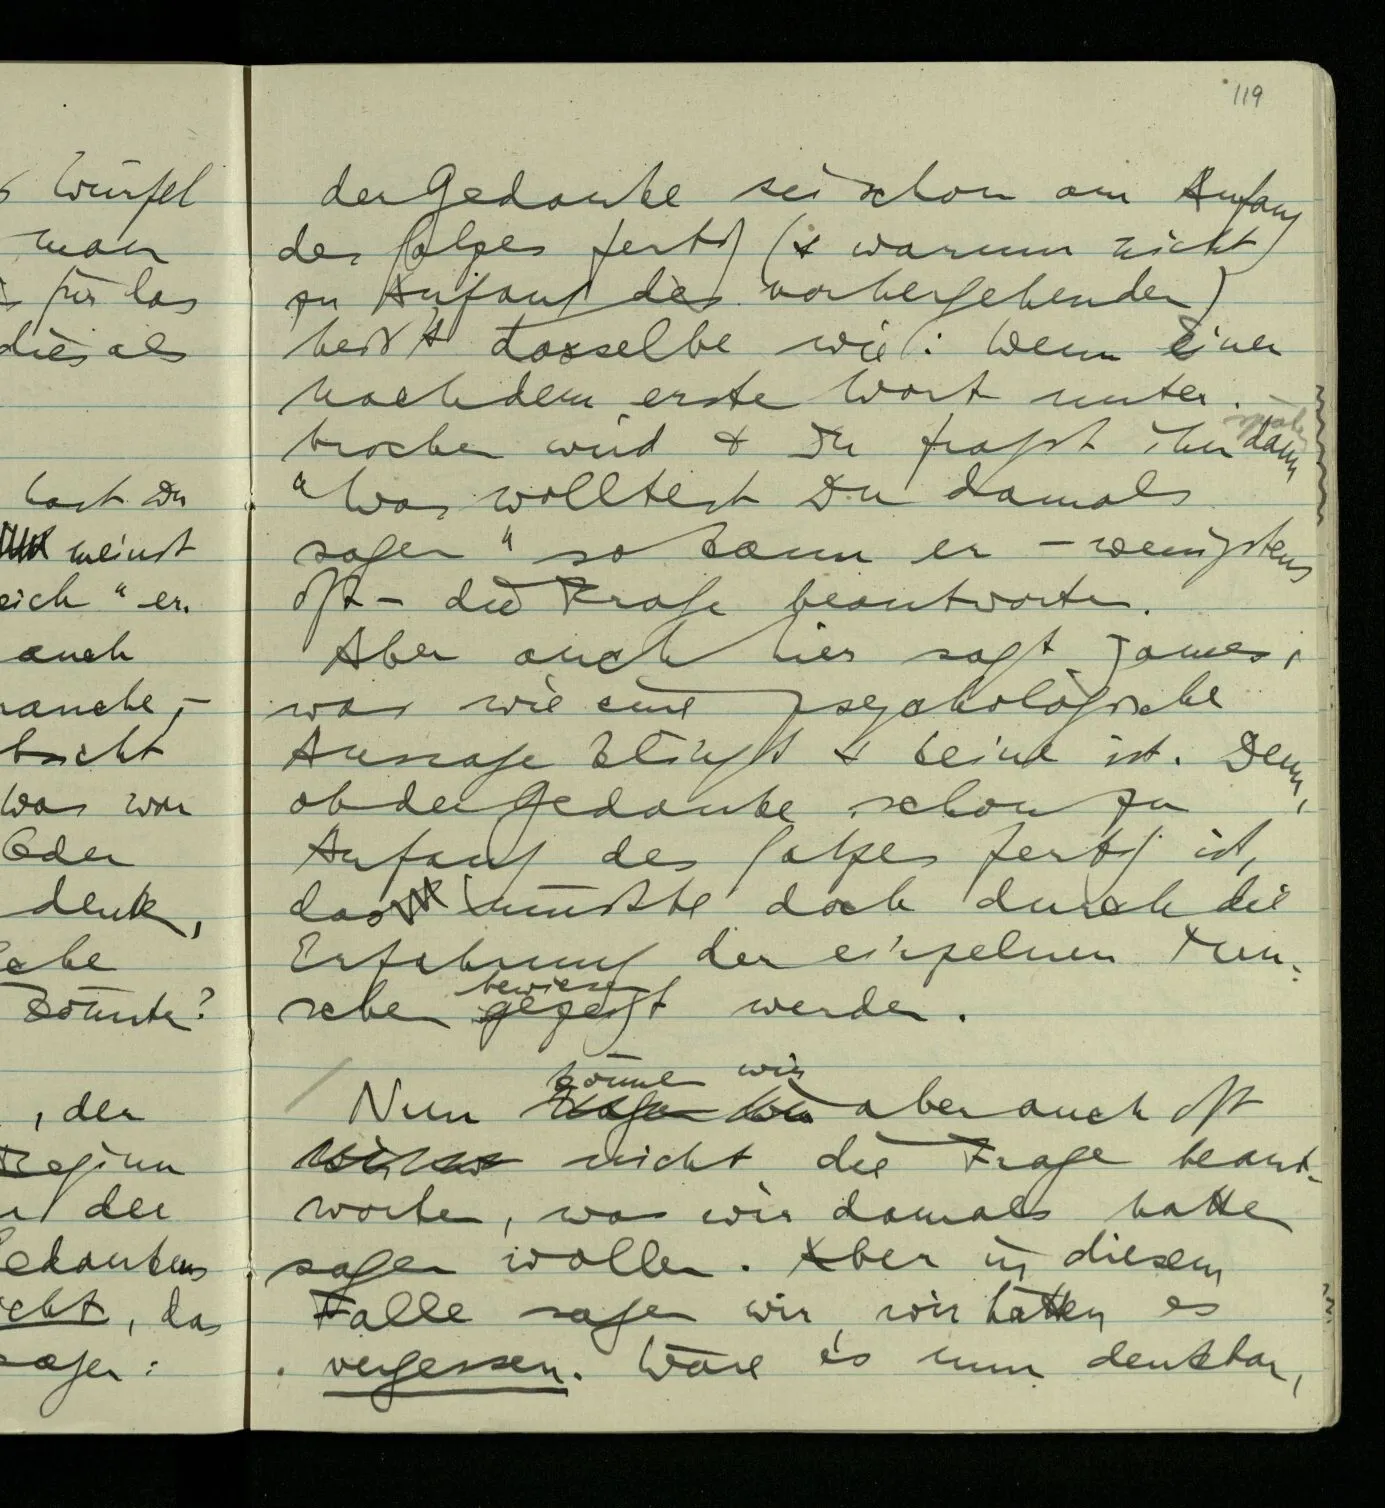 119
Würfel
man
für das
dies als
hast Du
meinst
eich" er.
auch
rauche, –
bricht
Was war
Oder
denk,
könnte?
, der
Beginn
der
Gedankens
icht, das
sagen:
der Gedanke sei schon am Anfang
des Satzes fertig (& warum nicht
zu Anfang des vorhergehenden)
heißt dasselbe wie: Wenn Einer
nach dem erste Wort unter-
brochen wird & Du fragst ihn später dann
"Was wolltest Du damals
sagen" so kann er – wenigstens
oft – die Frage beantworten.
Aber auch hier sagt James,
was wie eine psychologische
Aussage klingt & keine ist. Denn,
ob der Gedanke schon zu
Anfang des Satzes fertig ist,
das müßte doch durch die
Erfahrung der einzelnen Men-
bewiesen
schen gezeigt werden.
können wir
Nun aber auch oft
nicht die Frage beant-
worten, was wir damals hatten
sagen wollen. Aber in diesem
Falle sagen wir, wir hätten es
vergessen. Wäre es nun denkbar,